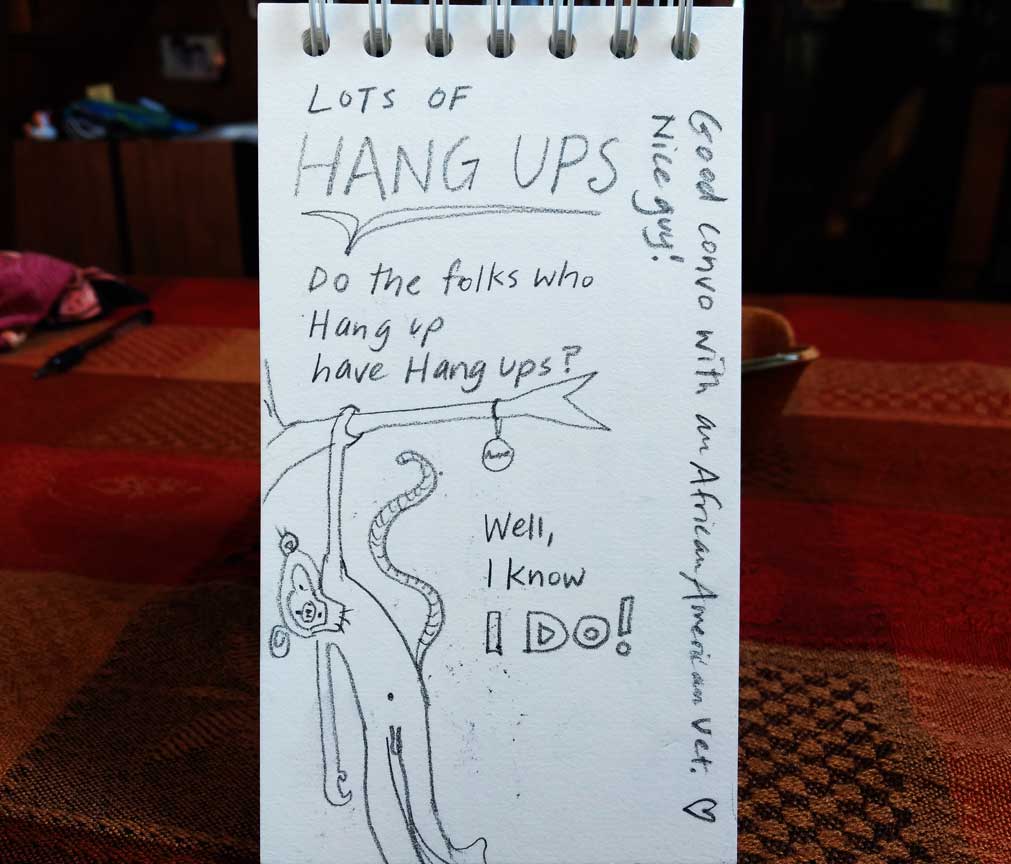 LOTS OF
HANG UPS
Do the folks who
Hang up
have Hang ups?
Well,
I know
I DO!
Good convo with an African American vet. ♡
Nice guy!